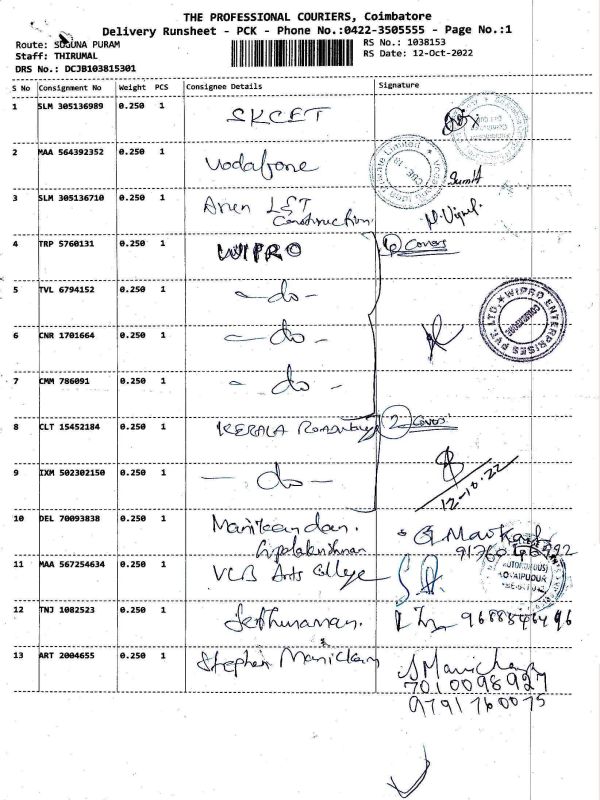 THE PROFESSIONAL COURIERS, Coimbatore
Delivery Runsheet - PCK - Phone No.:0422-3505555 - Page No.:1
Route: SUGUNA PURAM
RS No.: 1038153
Staff: THIRUMAL
RS Date: 12-Oct-2022
DRS No.: DCJB103815301
S No Consignment No Weight PCS Consignee Details Signature
1 SLM 305136989 0.250 1 SKCET
2 MAA 564392352 0.250 1 Vodafone Sumit
3 SLM 305136710 0.250 1 L&T
Construction
4 TRP 5760131 0.250 1 WIPRO Covers
5 TVL 6794152 0.250 1 - do -
6 CNR 1701664 0.250 1 - do -
7 CMM 786091 0.250 1 - do -
WIPRO ENTERPRISES PVT. LTD.
8 CLT 15452184 0.250 1 KERALA 2 Covers
9 IXM 502302150 0.250 1 - do -
12-10-22
10 DEL 70093838 0.250 1 Manikandan.
Gopalakrishnan
11 MAA 567254634 0.250 1 VLB Arts College
12 TNJ 1082523 0.250 1
13 ART 2004655 0.250 1 Stephen Manickam
7010098927
9791760075